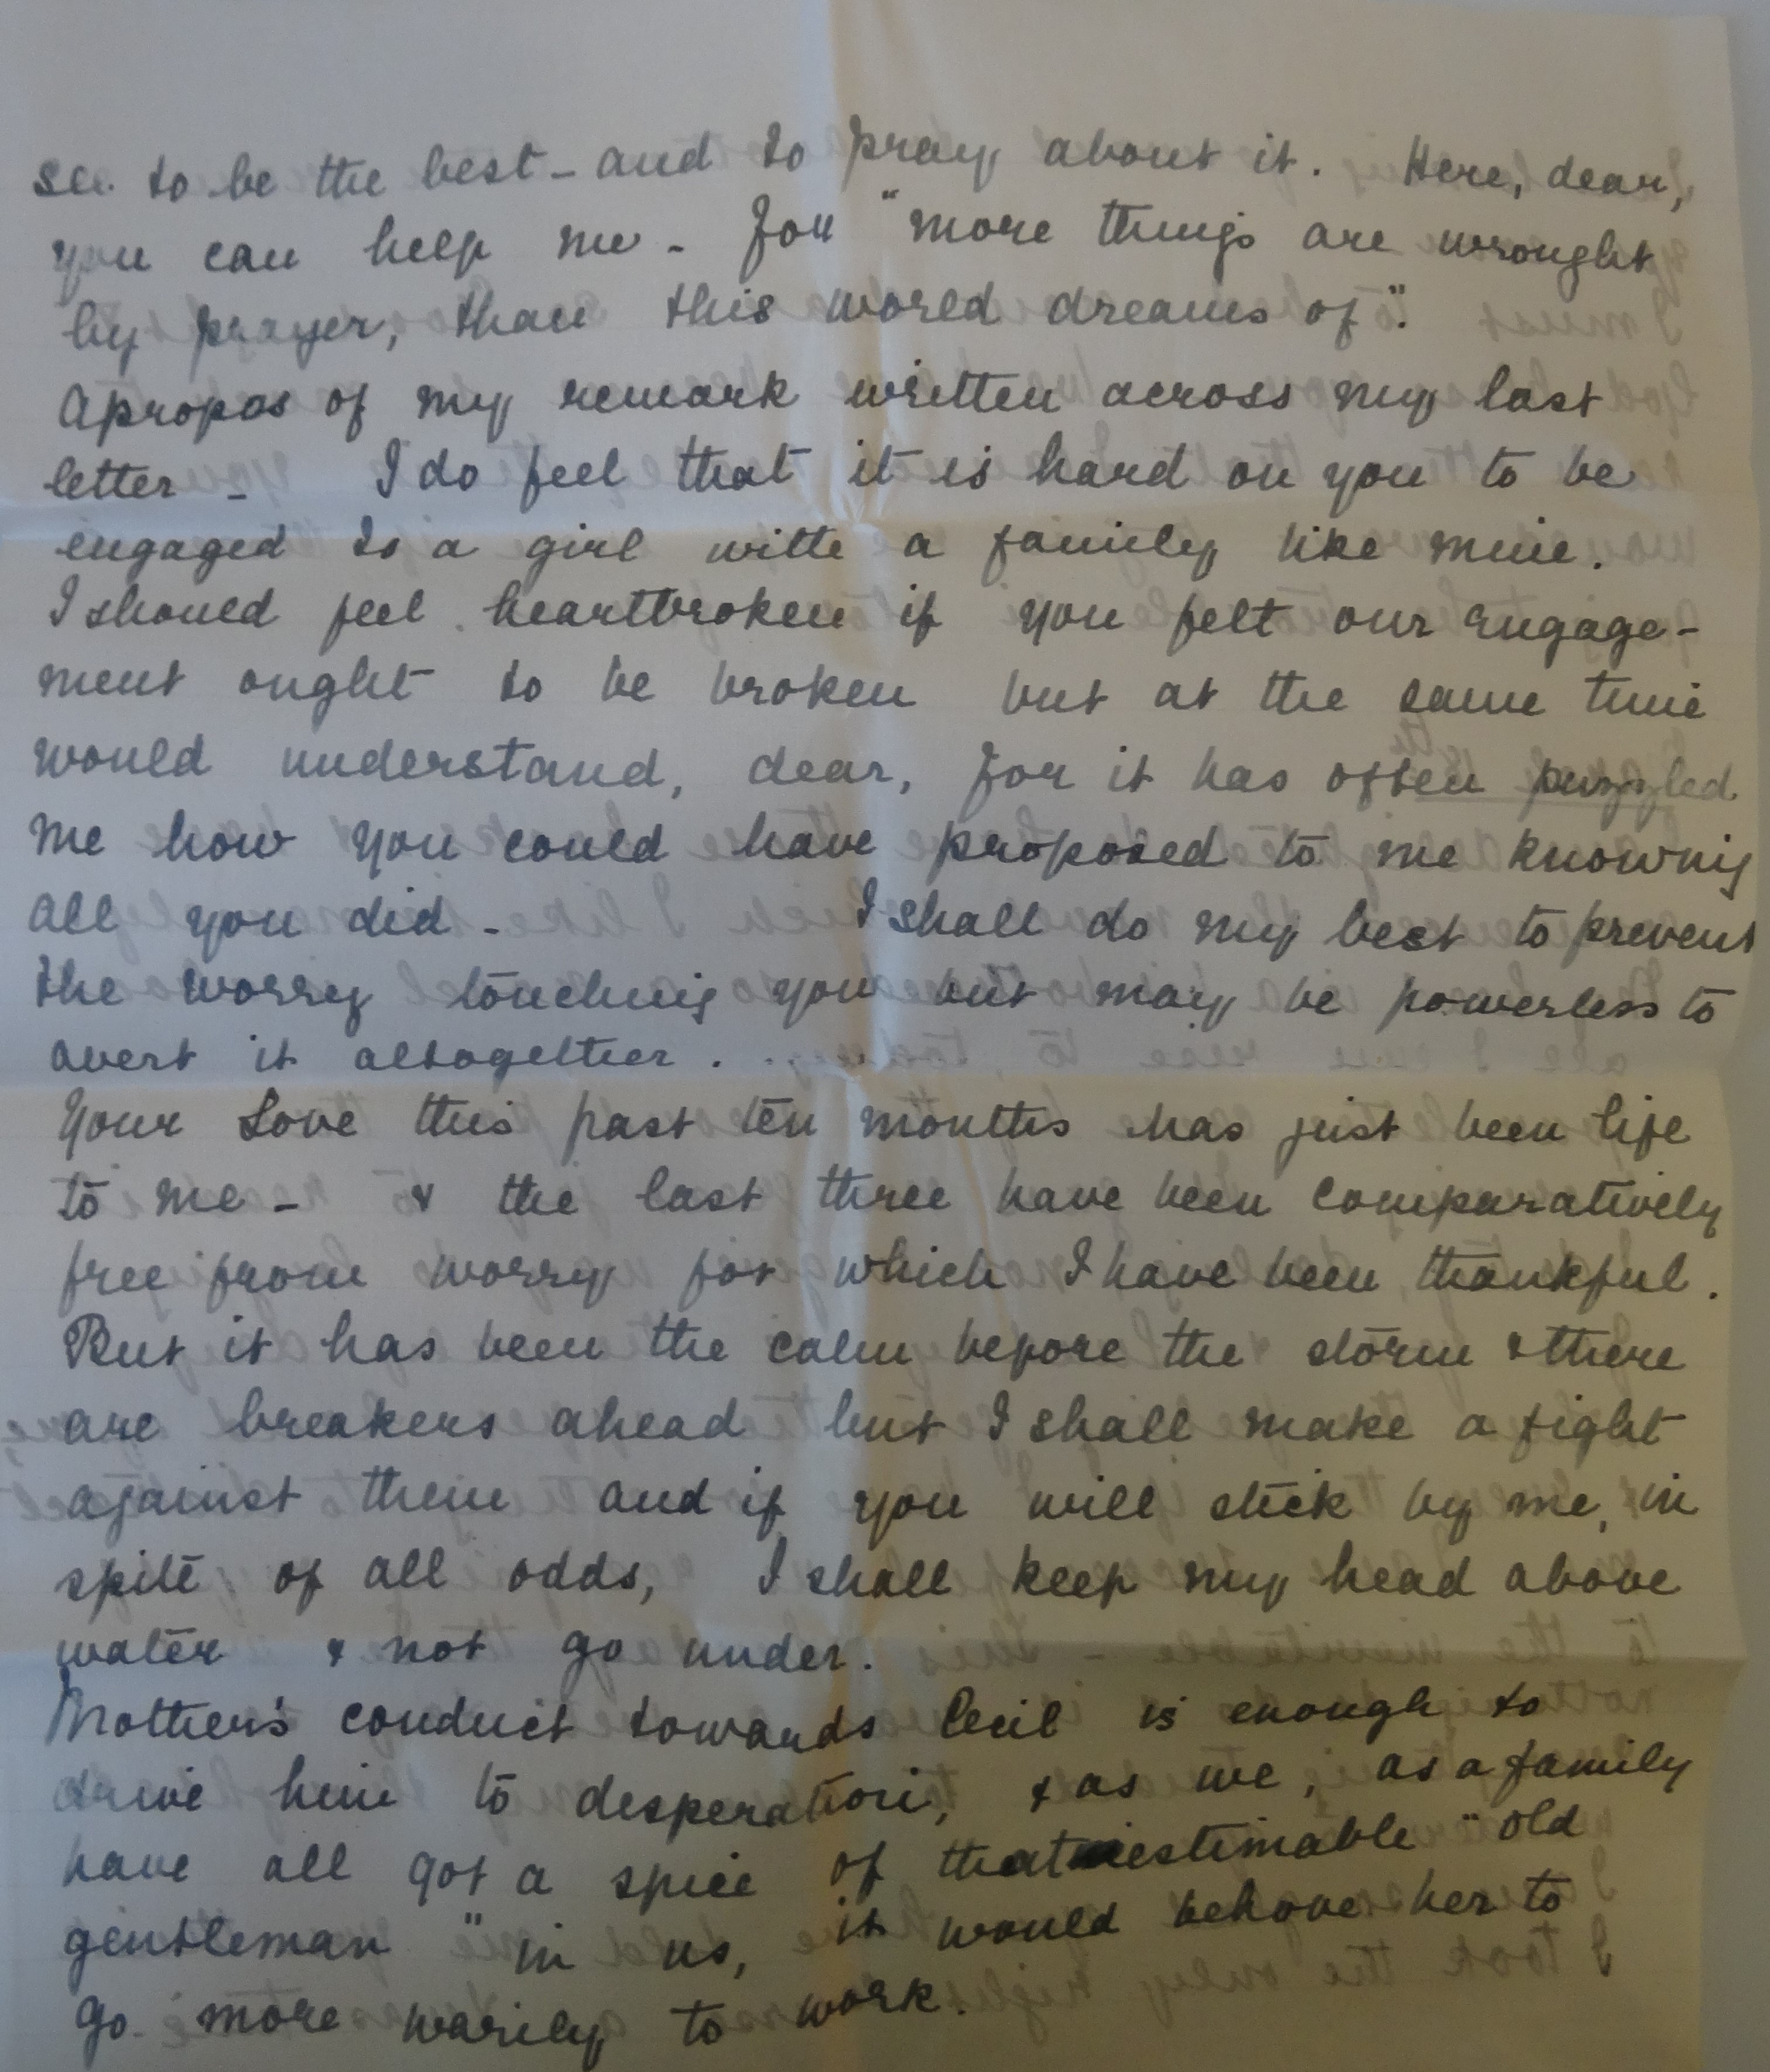 see to be the best - and to pray about it. Here, dear,
you can help me - for "more things are wrought
by prayer, than this world dreams of".
Apropos of my remark written across my last
letter - I do feel that it is hard on you to be
engaged to a girl with a family like mine.
I should feel heartbroken if you felt our engage-
ment ought to be broken but at the same time
would understand, dear, for it has often puzzled
me how you could have proposed to me knowing
all you did - I shall do my best to prevent
the worry touching you but may be powerless to
avert it altogether.
Your Love this past ten months has just been life
to me - & the last three have been comparatively
free from worry for which I have been thankful.
But it has been the calm before the storm & there
are breakers ahead but I shall make a fight
against them and if you will stick by me, in
spite of all odds, I shall keep my head above
water & not go under.
Mother's conduct towards Cecil is enough to
drive him to desperation, & as we, as a family
have all got a spice of that estimable "old
gentleman" in us, it would behove her to
go more warily to work.